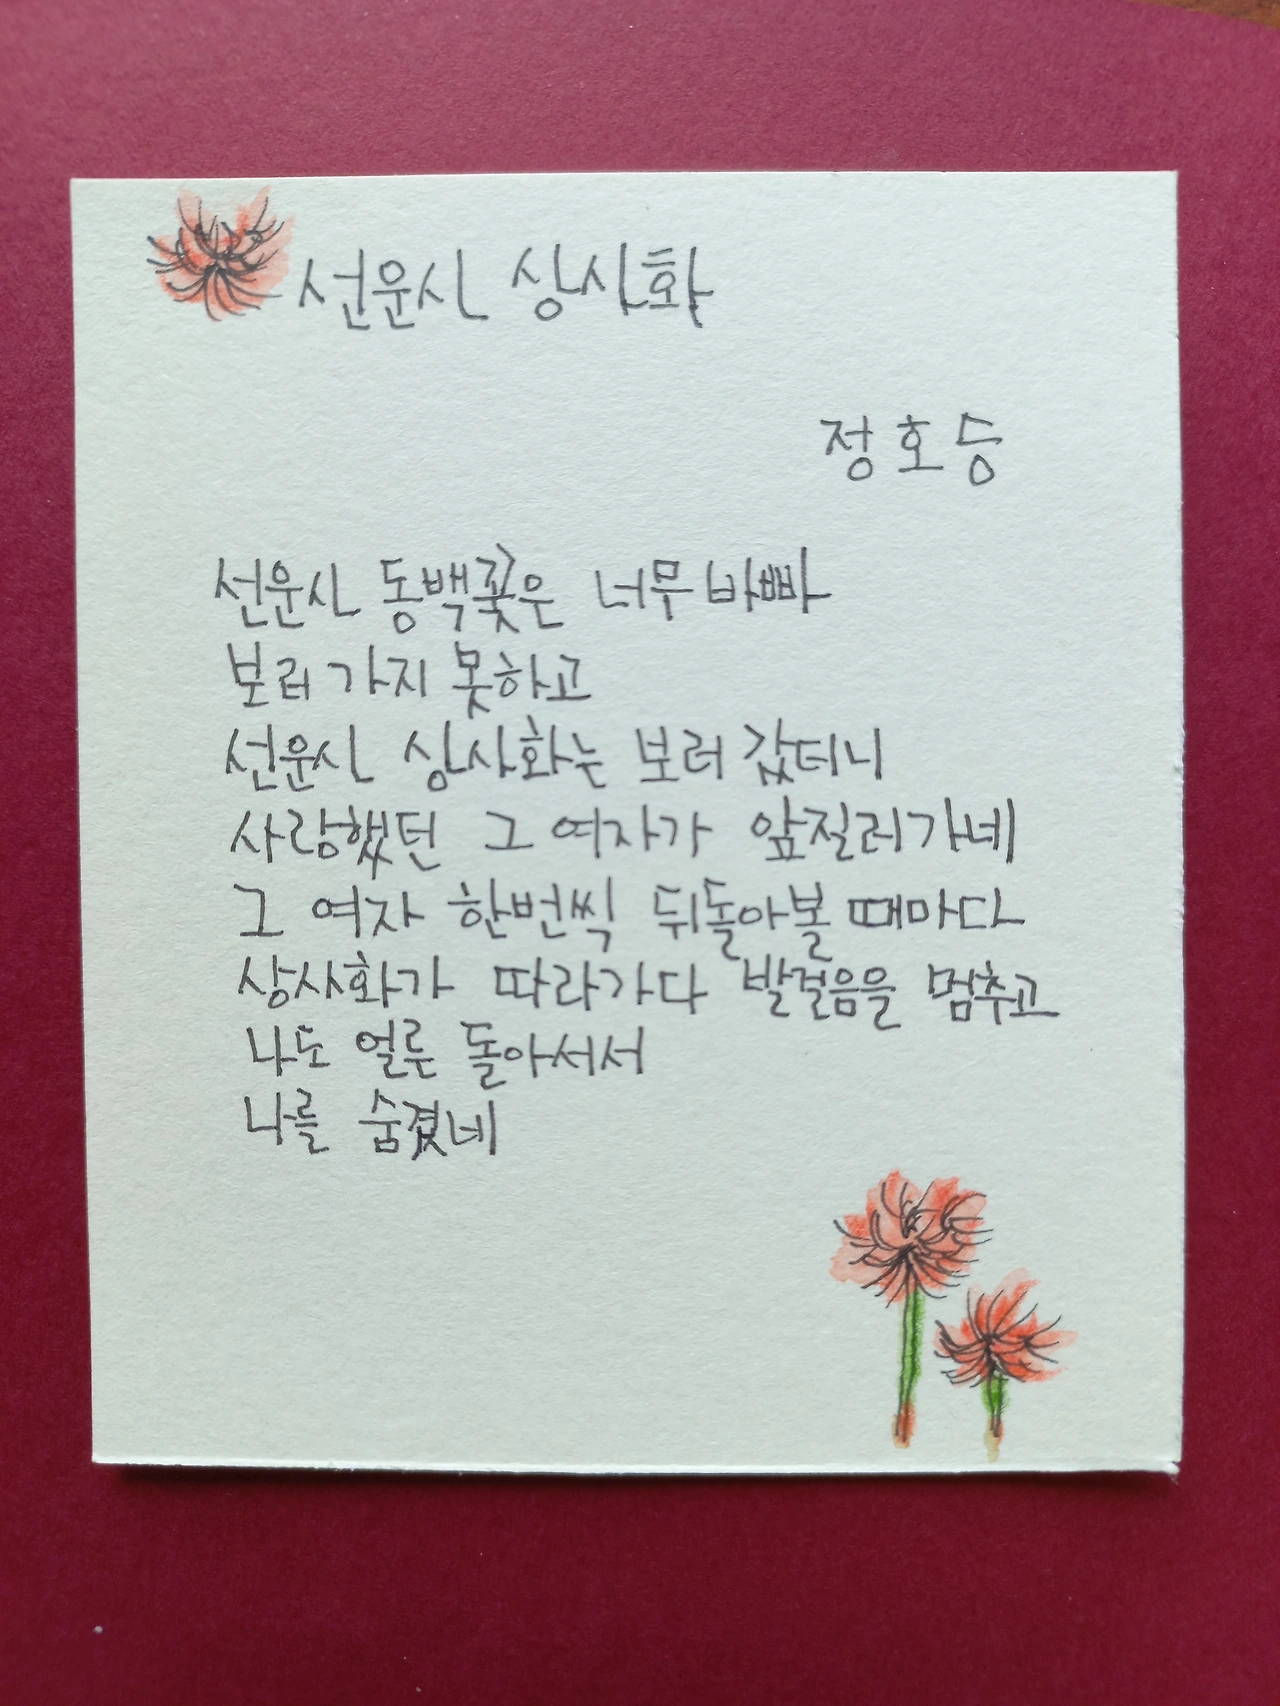 선운사 상사화
정호승
선운사 동백꽃은 너무 바빠
보러 가지 못하고
선운사 상사화는 보러 갔더니
사랑했던 그 여자가 앞질러가네
그 여자 한번씩 뒤돌아볼 때마다
상사화가 따라가다 발걸음을 멈추고
나도 얼른 돌아서서
나를 숨겼네